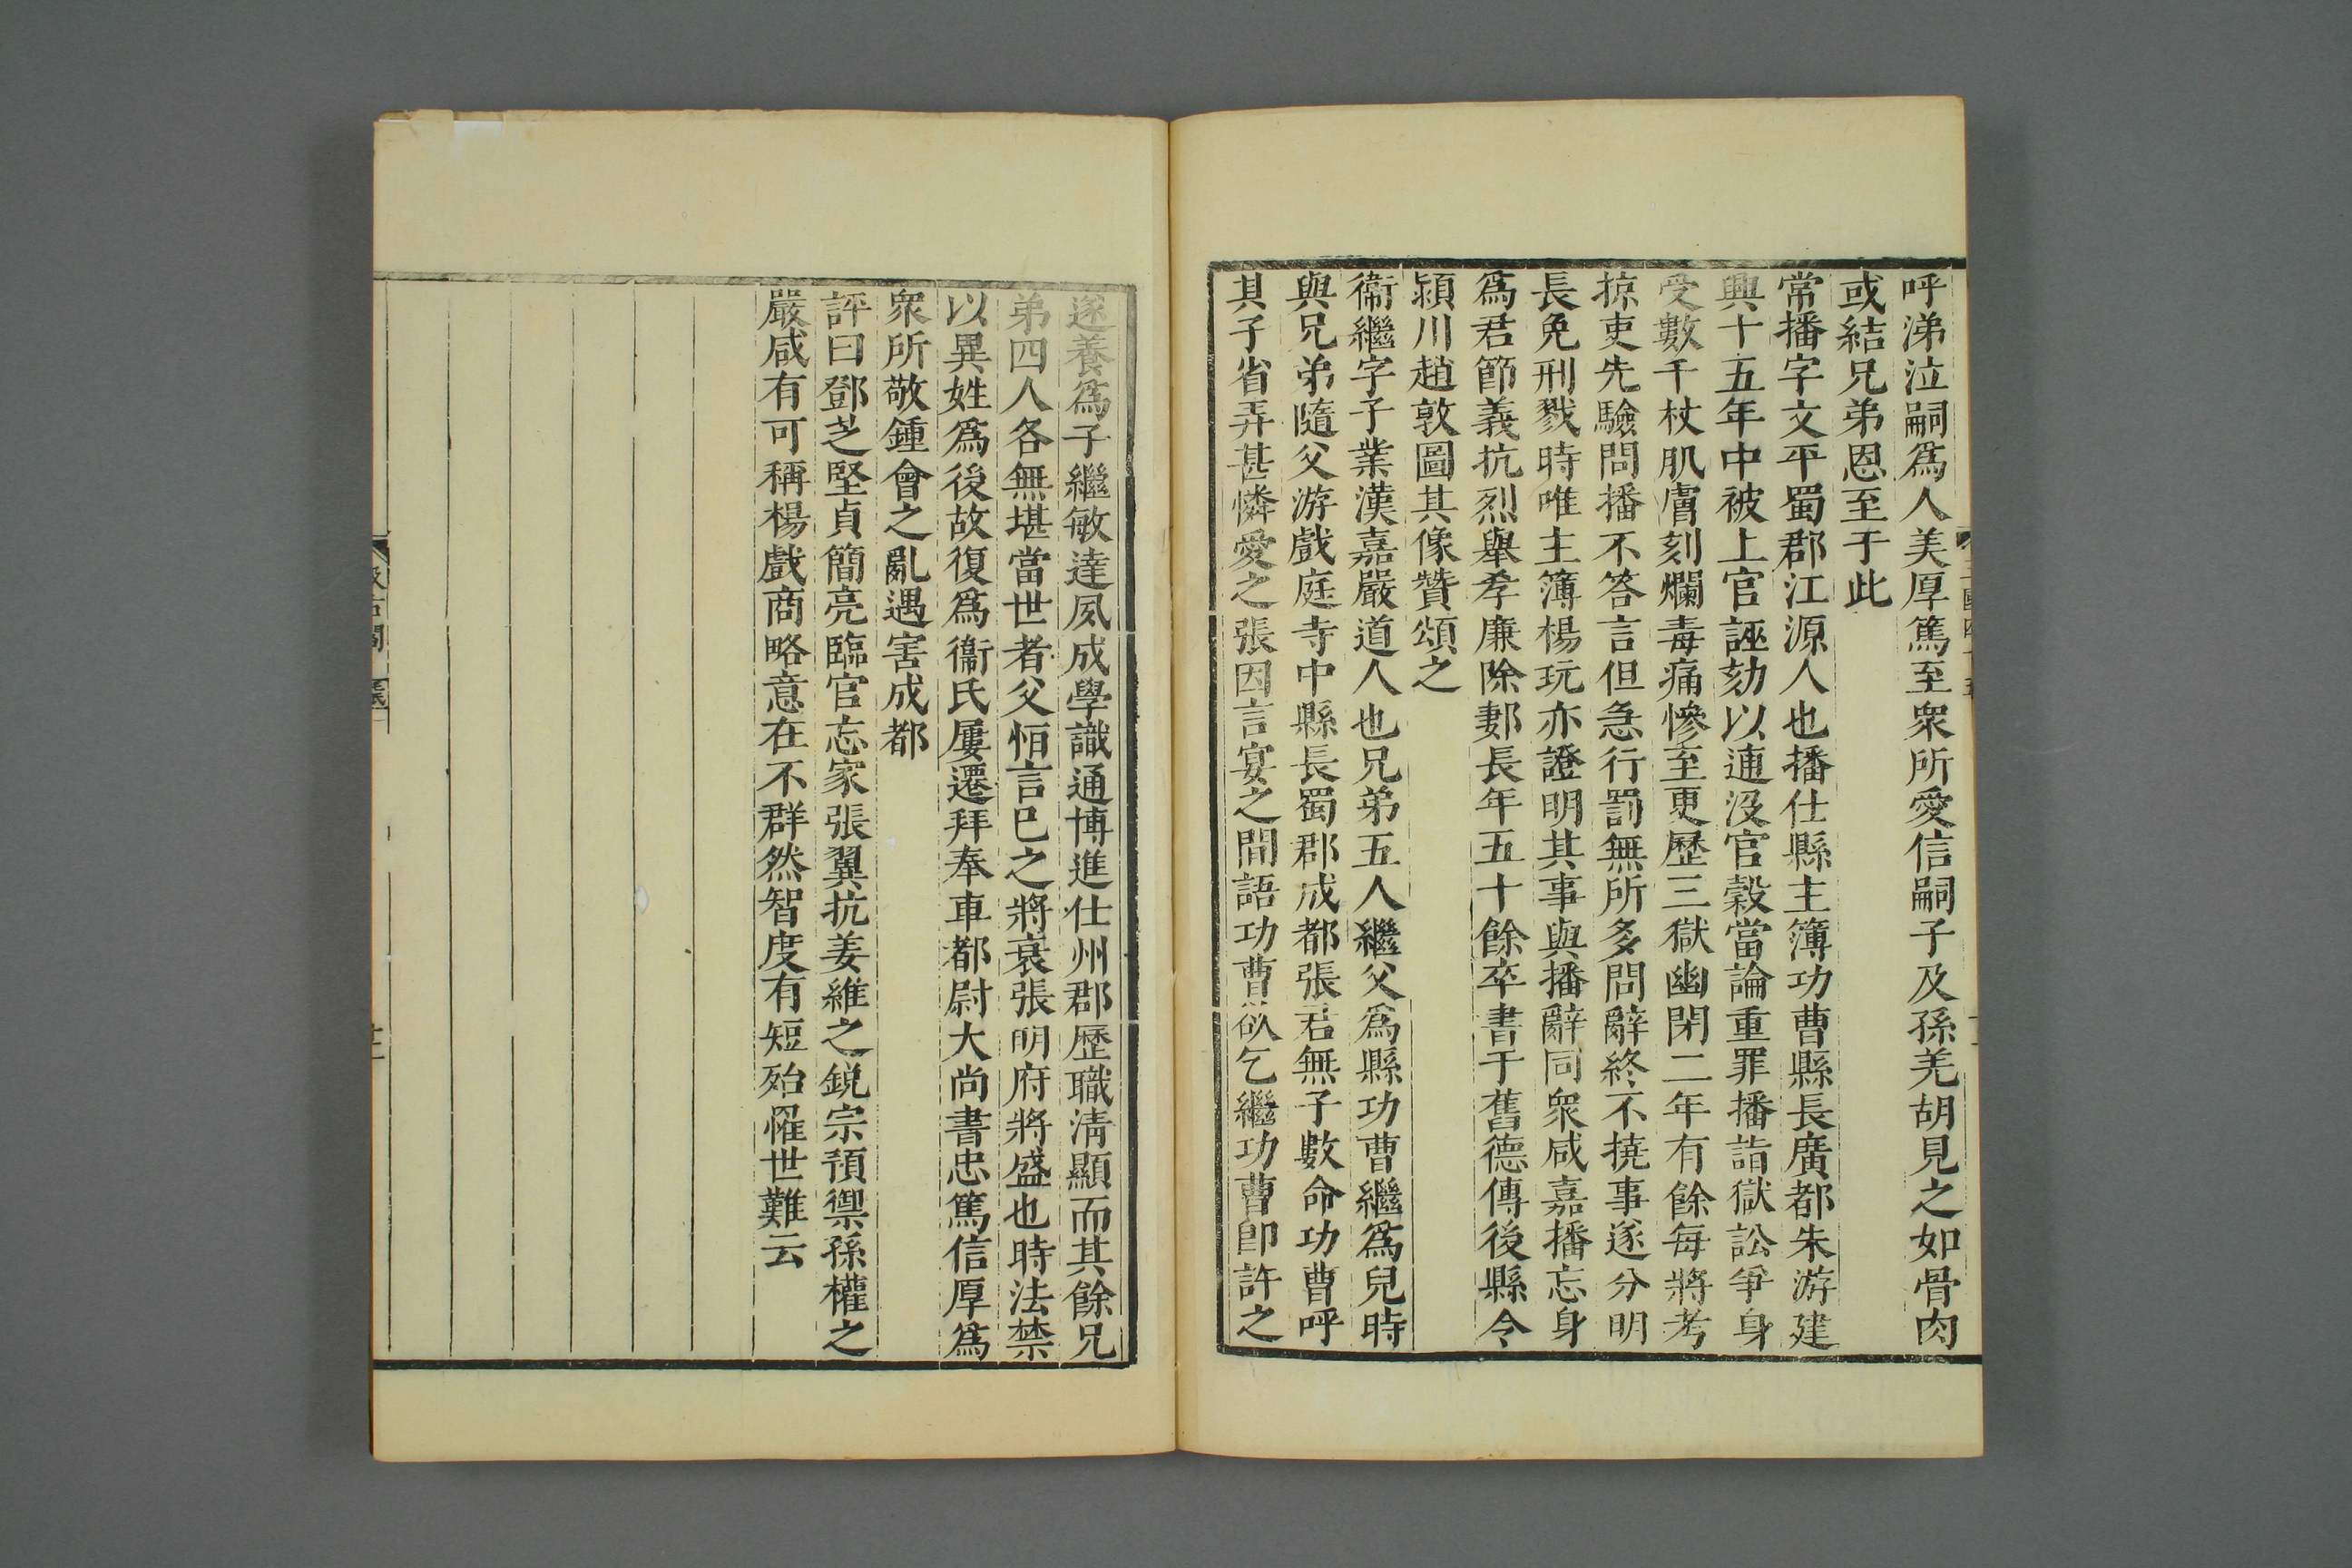 呼涕泣嗣爲人美厚篤至衆所愛信嗣子及孫羌胡見之如骨肉
或結兄弟恩至于此
常播字文平蜀郡江源人也播仕縣主簿功曹縣長廣都朱游建
興十五年中被上官誣劾以逋没官穀當論重罪播詣獄訟爭身
受數千杖肌膚刻爛毒痛慘至更歷三獄幽閉二年有餘每將考
掠吏先驗問播不答言但急行罰無所多問辭終不撓事遂分明
長免刑戮時唯主簿楊玩亦證明其事與播辭同衆咸嘉播忘身
爲君節義抗烈舉孝廉除郪長年五十餘卒書于舊德傳後縣令
潁川趙敦圖其像贊頌之
衞繼字子業漢嘉嚴道人也兄弟五人繼父爲縣功曹繼爲兒時
與兄弟隨父游戲庭寺中縣長蜀郡成都張君無子數命功曹呼
其子省弄甚憐愛之張因言宴之間語功曹欲乞繼功曹卽許之
遂養爲子繼敏達夙成學識通博進仕州郡歷職清顯而其餘兄
弟四人各無堪當世者父恒言巳之將衰張明府將盛也時法禁
以異姓爲後故復爲衞氏屢遷拜奉車都尉大尚書忠篤信厚爲
衆所敬鍾會之亂遇害成都
評曰鄧芝堅貞簡亮臨官忘家張翼抗姜維之銳宗預禦孫權之
嚴咸有可稱楊戲商略意在不群然智度有短殆罹世難云